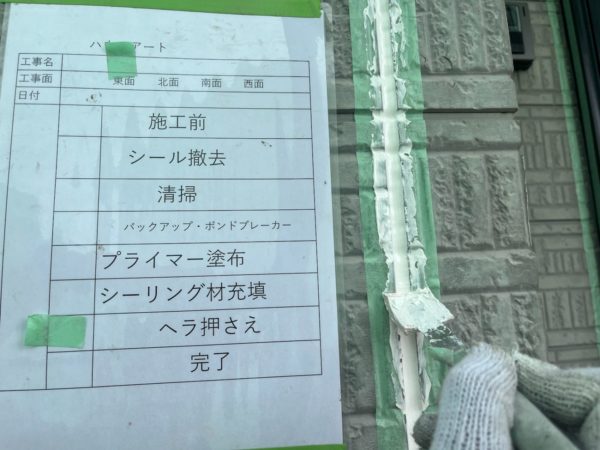 ハ アート
工事名
工事面 東面 北面 南面 西面
日付
施工前
シール撤去
清掃
バックアップ・ボンドブレーカー
プライマー塗布
シーリング材充填
ヘラ押さえ
完了